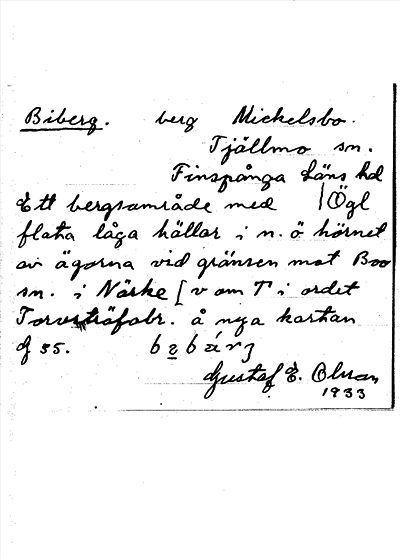 Biberg. berg Mickelsbo.
Tjällmo sn.
Finspånga Läns hd
Ett bergsområde med | Ögl
flata låga hällar i n. ö hörnet
av ägorna vid gränsen mot Boo
sn. i Närke [ v om T i ordet
Torvströfabr. å nya kartan
f 55.
Gustaf E. Olsson
1933